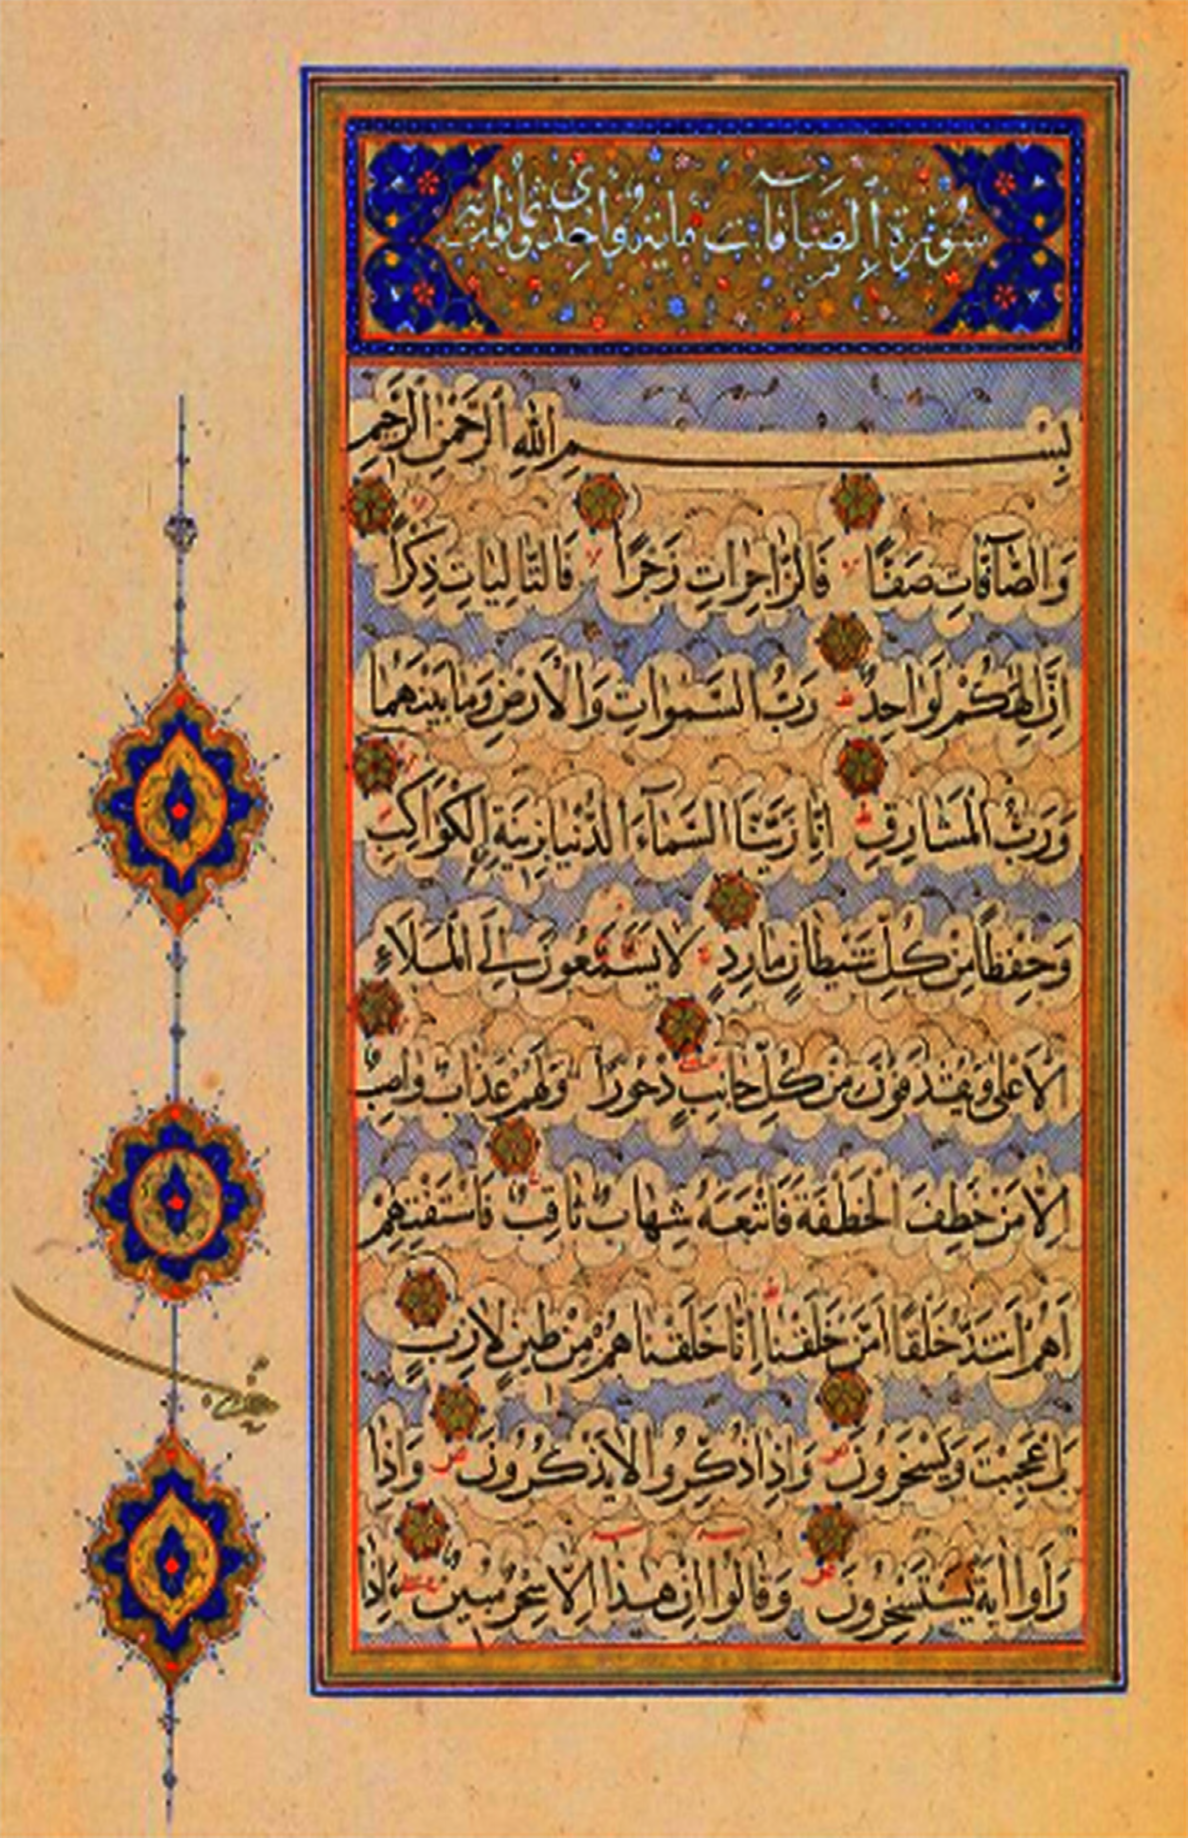 سورة الصافات مائة واحدى وثمانون اية
بِسْمِ اللهِ الرَّحْمٰنِ الرَّحِيمِ
وَالصَّآفَّاتِ صَفًّا فَالزَّاجِرَاتِ زَجْرًا فَالتَّالِيَاتِ ذِكْرًا
اِنَّ اِلٰهَكُمْ لَوَاحِدٌ رَبُّ السَّمٰوَاتِ وَالْاَرْضِ وَمَا بَيْنَهُمَا
وَرَبُّ الْمَشَارِقِ اِنَّا زَيَّنَّا السَّمَآءَ الدُّنْيَا بِزِينَةٍ الْكَوَاكِبِ
وَحِفْظًا مِنْ كُلِّ شَيْطَانٍ مَارِدٍ لَا يَسَّمَّعُونَ اِلَى الْمَلَاءِ
الْاَعْلٰى وَيُقْذَفُونَ مِنْ كُلِّ جَانِبٍ دُحُورًا وَلَهُمْ عَذَابٌ وَاصِبٌ
اِلَّا مَنْ خَطِفَ الْخَطْفَةَ فَاَتْبَعَهُ شِهَابٌ ثَاقِبٌ فَاسْتَفْتِهِمْ
اَهُمْ اَشَدُّ خَلْقًا اَمْ مَنْ خَلَقْنَا اِنَّا خَلَقْنَاهُمْ مِنْ طِينٍ لَازِبٍ
بَلْ عَجِبْتَ وَيَسْخَرُونَ وَاِذَا ذُكِّرُوا لَا يَذْكُرُونَ وَاِذَا
رَاَوْا اٰيَةً يَسْتَسْخِرُونَ وَقَالُوا اِنْ هٰذَا اِلَّا سِحْرٌ مُبِينٌ ءَاِذَا